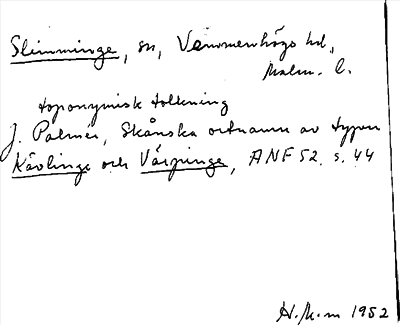 Slimminge, sn, Vemmenhögs hd,
Malm. l.
toponymisk tolkning
J. Palmér, Skånska ortnamn av typen
Kävlinge och Värpinge, ANF 52. s. 44
H.k-m 1952